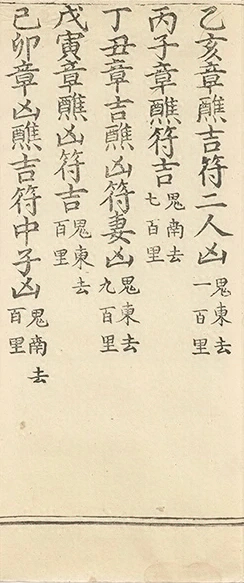 乙亥章醮吉符二人凶鬼東去一百里
丙子章醮符吉鬼南去七百里
丁丑章吉醮凶符妻凶鬼東去九百里
戊寅章醮凶符吉鬼東去百里
己卯章凶醮吉符中子凶鬼南去百里